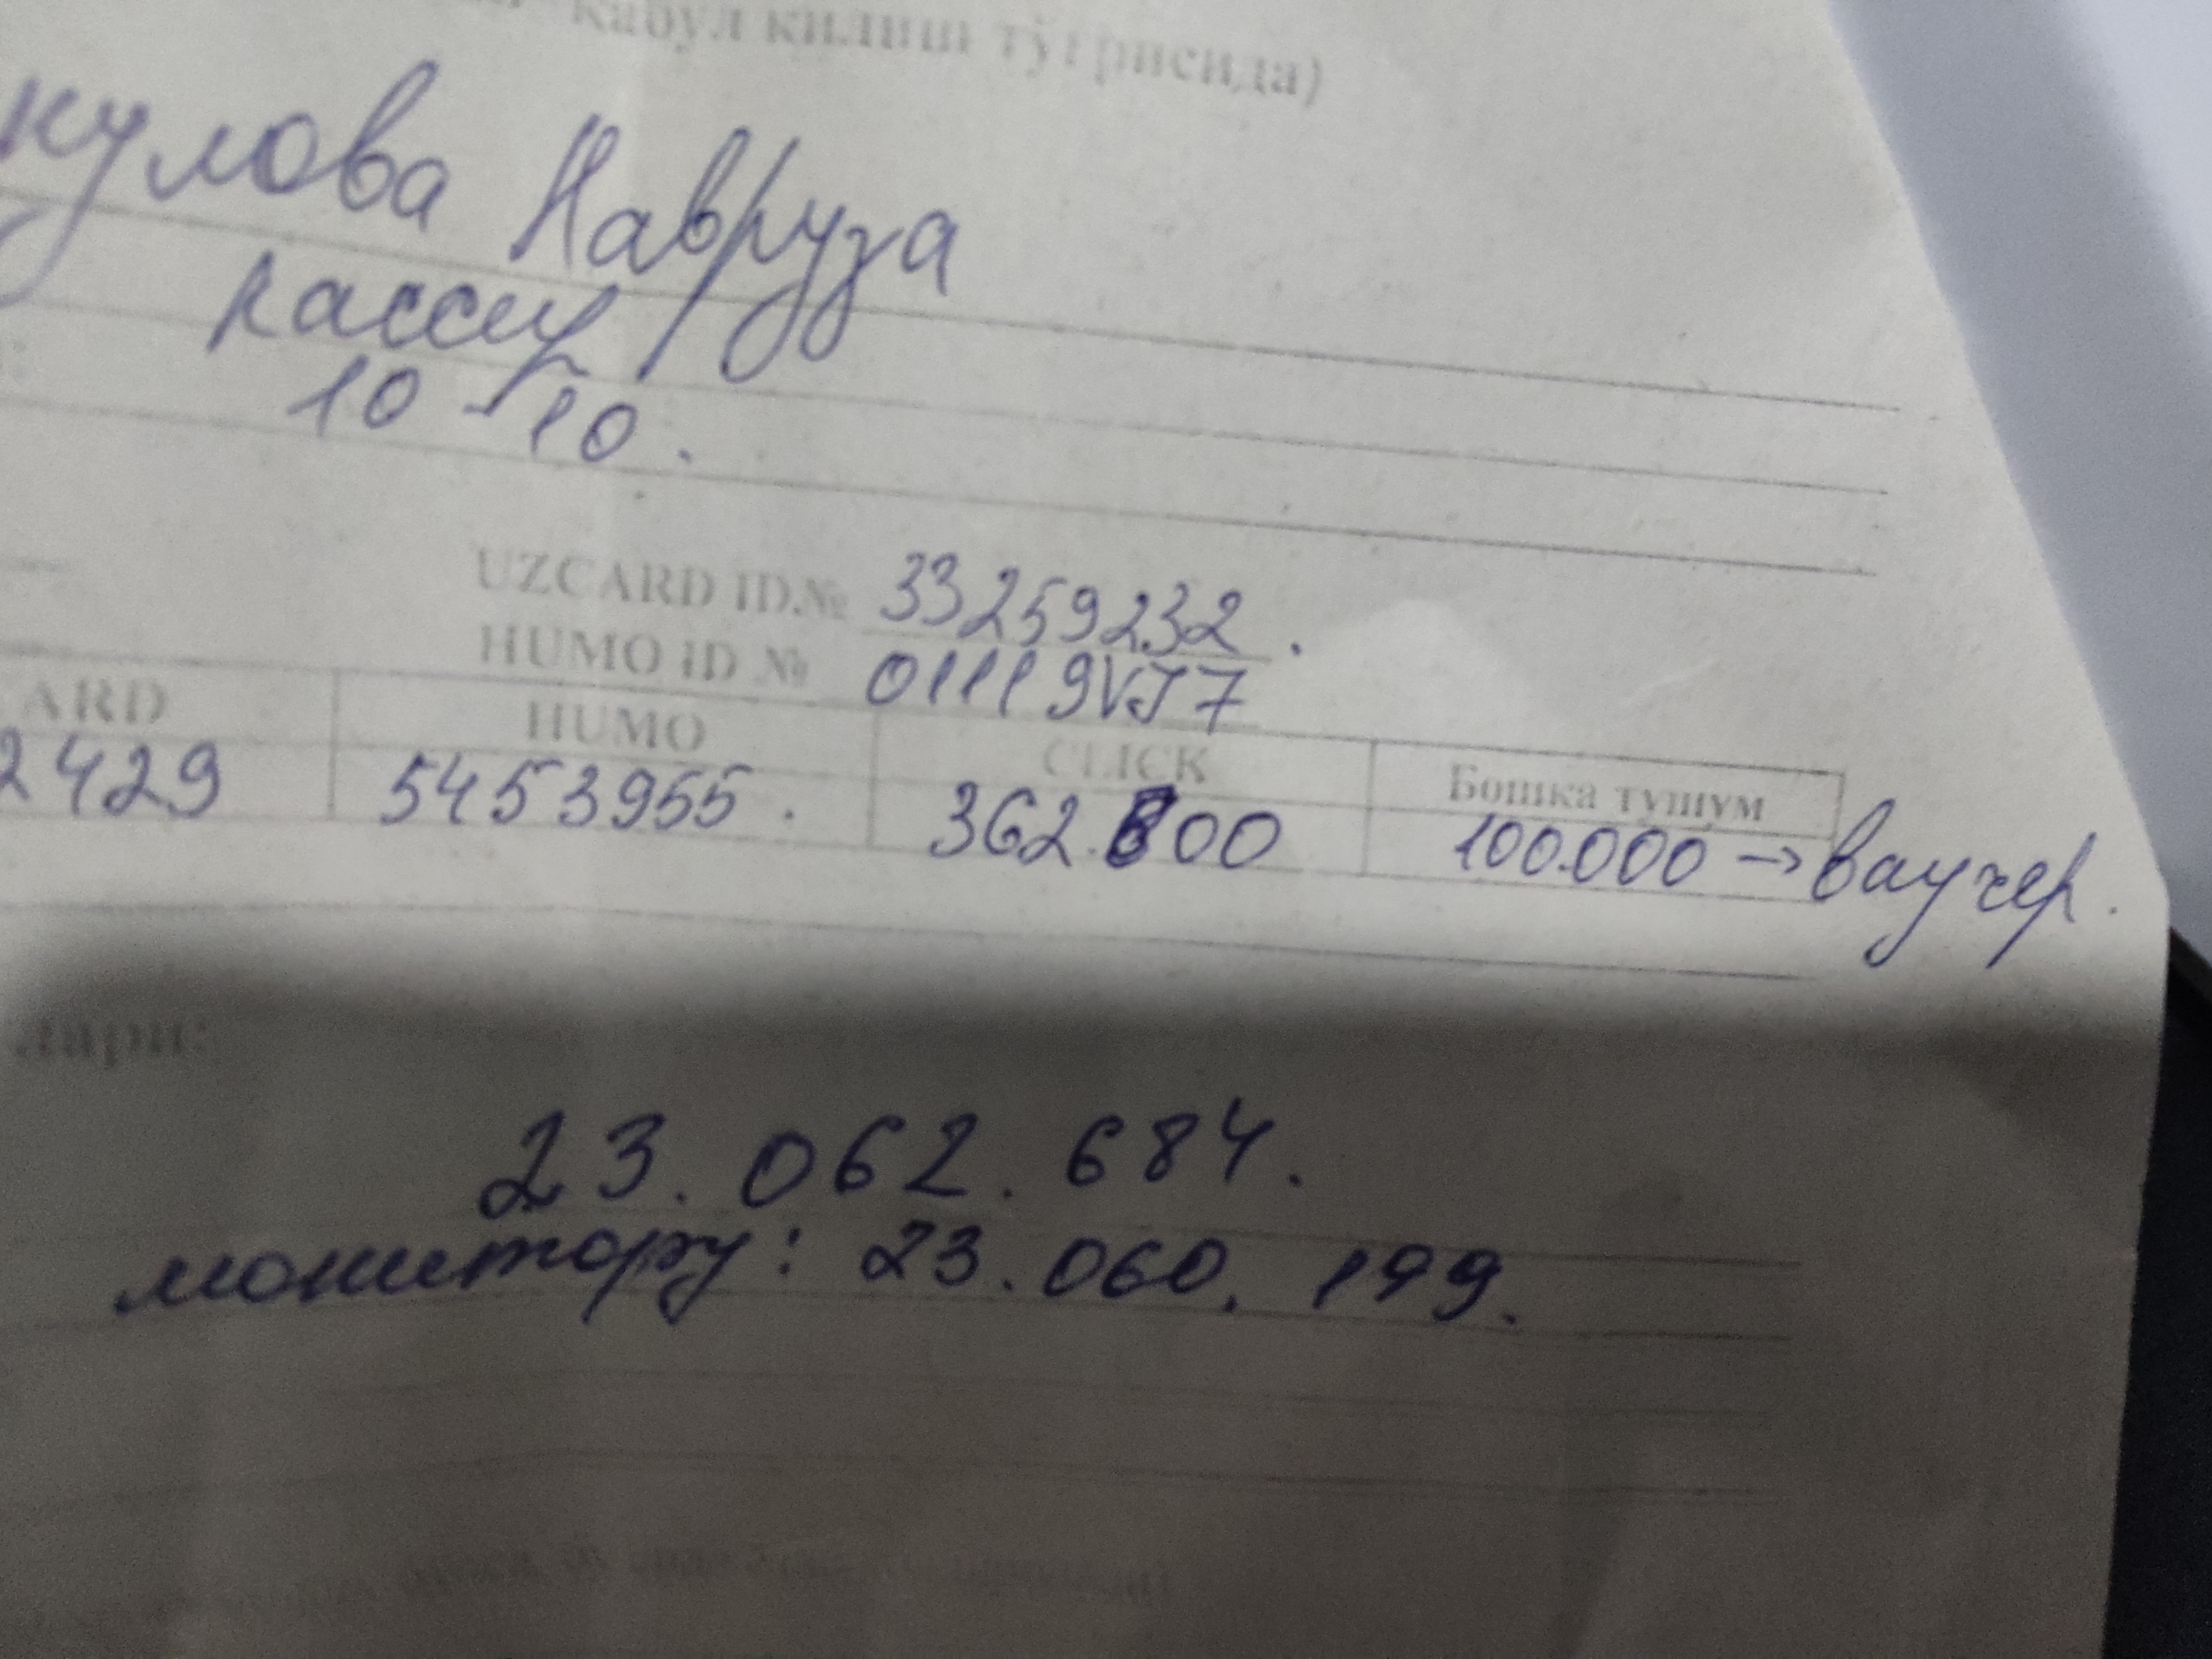 қабул қилиш тўғрисида)
кулова Навруза
кассир
10-10.
UZCARD ID.№ 33259232.
HUMO ID № 01119VJ7
ARD HUMO CLICK Бошка тушум
2429 5453955. 362.600 100.000 → ваучер.
лари:
23.062.684.
монитору: 23.060.199.